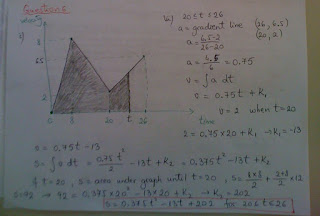 Questions
8
2
8 20 t 26
time
20 ≤ t ≤ 26
a = gradient line (26, 6.5)
(20, 2)
a = 6.5-2 / 26-20
a = 4.5/6 = 0.75
v = ∫ a dt
v = 0.75t + K₁
v = 2 when t=20
2 = 0.75×20 + K₁ → K₁ = -13
= 0.75t -13
s = ∫ dt = 0.75t²/2 -13t + K₂ = 0.375t² -13t + K₂
if t = 20, s = area under graph until t=20, s = 8×8/2 + 2+8/2 ×12
s=92 → 92 = 0.375×20² -13×20 + K₂ → K₂ = 202
s = 0.375t² -13t + 202 for 20≤t≤26